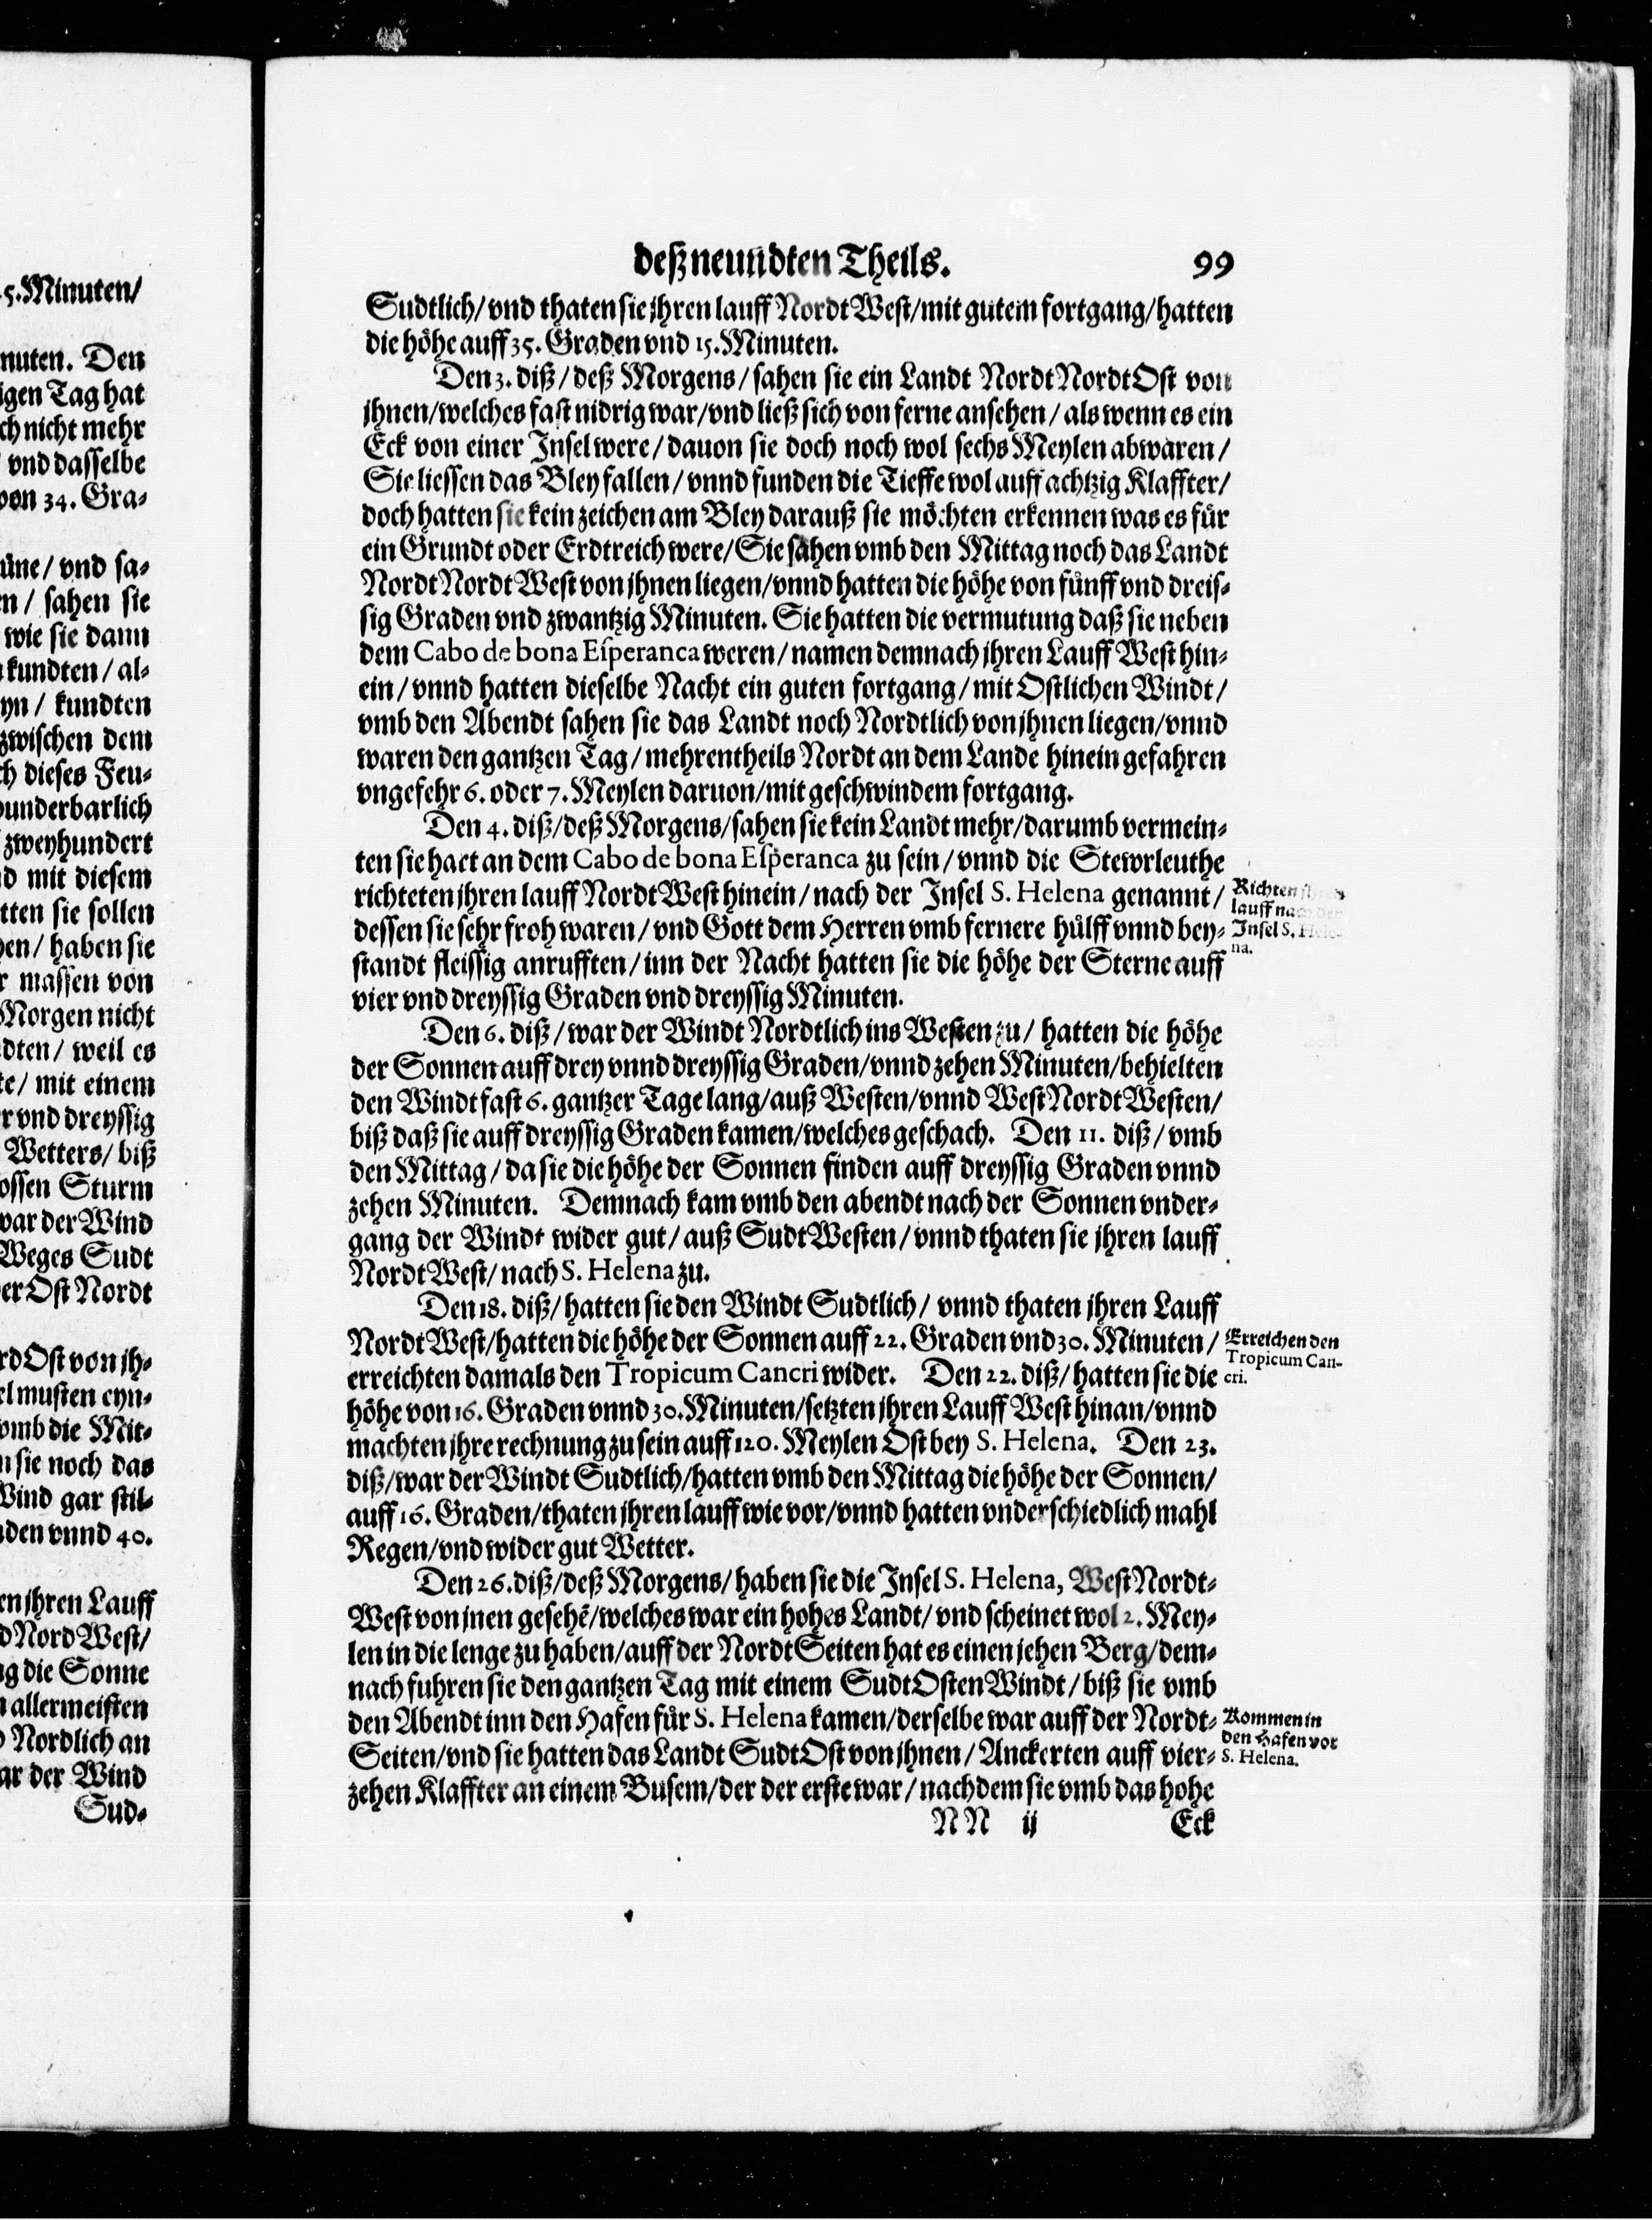 5. Minuten/
nuten. Den
igen Tag hat
ch nicht mehr
/ vnd dasselbe
von 34. Gra-
üne / vnd sa-
en / sahen sie
wie sie dann
kundten / al-
yn / kundten
zwischen dem
ch dieses Feu-
wunderbarlich
zweyhundert
nd mit diesem
tten sie sollen
hen / haben sie
r massen von
Morgen nicht
dten / weil es
te / mit einem
r vnd dreyssig
Wetters / biß
ossen Sturm
war der Wind
Weges Sudt
er Ost Nordt
rd Ost von jh-
el musten eyn-
vmb die Mit-
n sie noch das
Wind gar stil-
den vnnd 40.
en jhren Lauff
d Nord West /
ag die Sonne
n allermeisten
Nordlich an
ar der Wind
Sud-
deß neundten Theils. 99
Sudtlich / vnd thaten sie jhren lauff Nordt West / mit gutem fortgang / hatten
die höhe auff 35. Graden vnd 15. Minuten.
Den 3. diß / deß Morgens / sahen sie ein Landt Nordt Nordt Ost von
jhnen / welches fast nidrig war / vnd ließ sich von ferne ansehen / als wenn es ein
Eck von einer Insel were / dauon sie doch noch wol sechs Meylen abwaren /
Sie liessen das Bley fallen / vnnd funden die Tieffe wol auff achtzig Klaffter /
doch hatten sie kein zeichen am Bley darauß sie möchten erkennen was es für
ein Grundt oder Erdtreich were / Sie sahen vmb den Mittag noch das Landt
Nordt Nordt West von jhnen liegen / vnnd hatten die höhe von fünff vnd dreis-
sig Graden vnd zwantzig Minuten. Sie hatten die vermutung daß sie neben
dem Cabo de bona Esperanca weren / namen demnach jhren Lauff West hin-
ein / vnnd hatten dieselbe Nacht ein guten fortgang / mit Ostlichen Windt /
vmb den Abendt sahen sie das Landt noch Nordtlich von jhnen liegen / vnnd
waren den gantzen Tag / mehrentheils Nordt an dem Lande hinein gefahren
vngefehr 6. oder 7. Meylen daruon / mit geschwindem fortgang.
Den 4. diß / deß Morgens / sahen sie kein Landt mehr / darumb vermein-
ten sie hart an dem Cabo de bona Esperanca zu sein / vnnd die Stewrleuthe
richteten jhren lauff Nordt West hinein / nach der Insel S. Helena genannt /
dessen sie sehr froh waren / vnd Gott dem Herren vmb fernere hülff vnnd bey-
standt fleissig anrufften / inn der Nacht hatten sie die höhe der Sterne auff
vier vnd dreyssig Graden vnd dreyssig Minuten.
Richten
lauff nach der
Insel S. Hele-
na.
Den 6. diß / war der Windt Nordtlich ins Westen zu / hatten die höhe
der Sonnen auff drey vnnd dreyssig Graden / vnnd zehen Minuten / behielten
den Windt fast 6. gantzer Tage lang / auß Westen / vnnd West Nordt Westen /
biß daß sie auff dreyssig Graden kamen / welches geschach. Den 11. diß / vmb
den Mittag / da sie die höhe der Sonnen finden auff dreyssig Graden vnnd
zehen Minuten. Demnach kam vmb den abendt nach der Sonnen vnder-
gang der Windt wider gut / auß Sudt Westen / vnnd thaten sie jhren lauff
Nordt West / nach S. Helena zu.
Den 18. diß / hatten sie den Windt Sudtlich / vnnd thaten jhren Lauff
Nordt West / hatten die höhe der Sonnen auff 22. Graden vnd 30. Minuten /
erreichten damals den Tropicum Cancri wider. Den 22. diß / hatten sie die
höhe von 16. Graden vnnd 30. Minuten / setzten jhren Lauff West hinan / vnnd
machten jhre rechnung zu sein auff 120. Meylen Ost bey S. Helena. Den 23.
diß / war der Windt Sudtlich / hatten vmb den Mittag die höhe der Sonnen /
auff 16. Graden / thaten jhren lauff wie vor / vnnd hatten vnderschiedlich mahl
Regen / vnd wider gut Wetter.
Erreichen den
Tropicum Can-
cri.
Den 26. diß / deß Morgens / haben sie die Insel S. Helena, West Nordt-
West von inen gesehẽ / welches war ein hohes Landt / vnd scheinet wol 2. Mey-
len in die lenge zu haben / auff der Nordt Seiten hat es einen jehen Berg / dem-
nach fuhren sie den gantzen Tag mit einem Sudt Osten Windt / biß sie vmb
den Abendt inn den Hafen für S. Helena kamen / derselbe war auff der Nordt-
Seiten / vnd sie hatten das Landt Sudt Ost von jhnen / Anckerten auff vier-
zehen Klaffter an einem Busem / der der erste war / nachdem sie vmb das hohe
Kommen in
den Hafen vor
S. Helena.
NN ij Eck